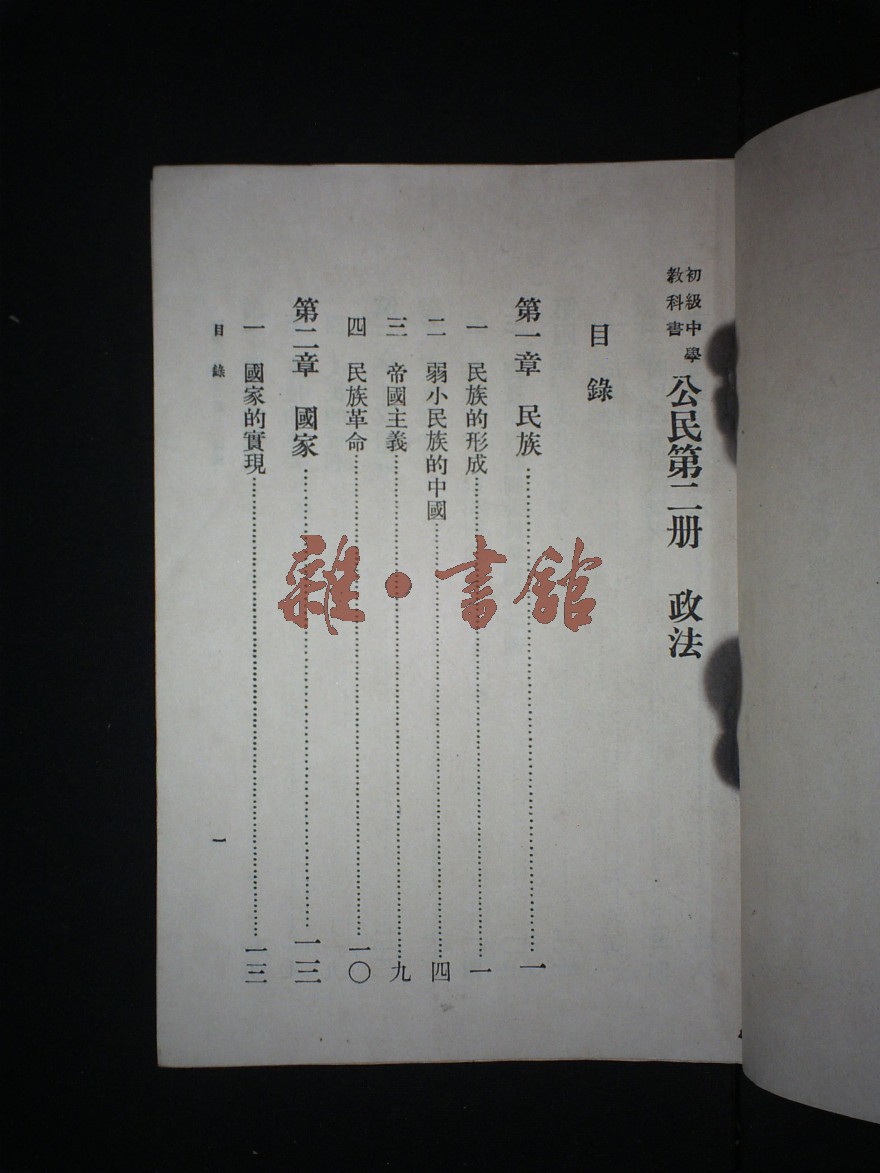 初級中學教科書 公民第二册 政法
目錄
第一章 民族……一
一 民族的形成……一
二 弱小民族的中國……四
三 帝國主義……九
四 民族革命……一〇
第二章 國家……一三
一 國家的實現……一三
目錄 一
雜·書館